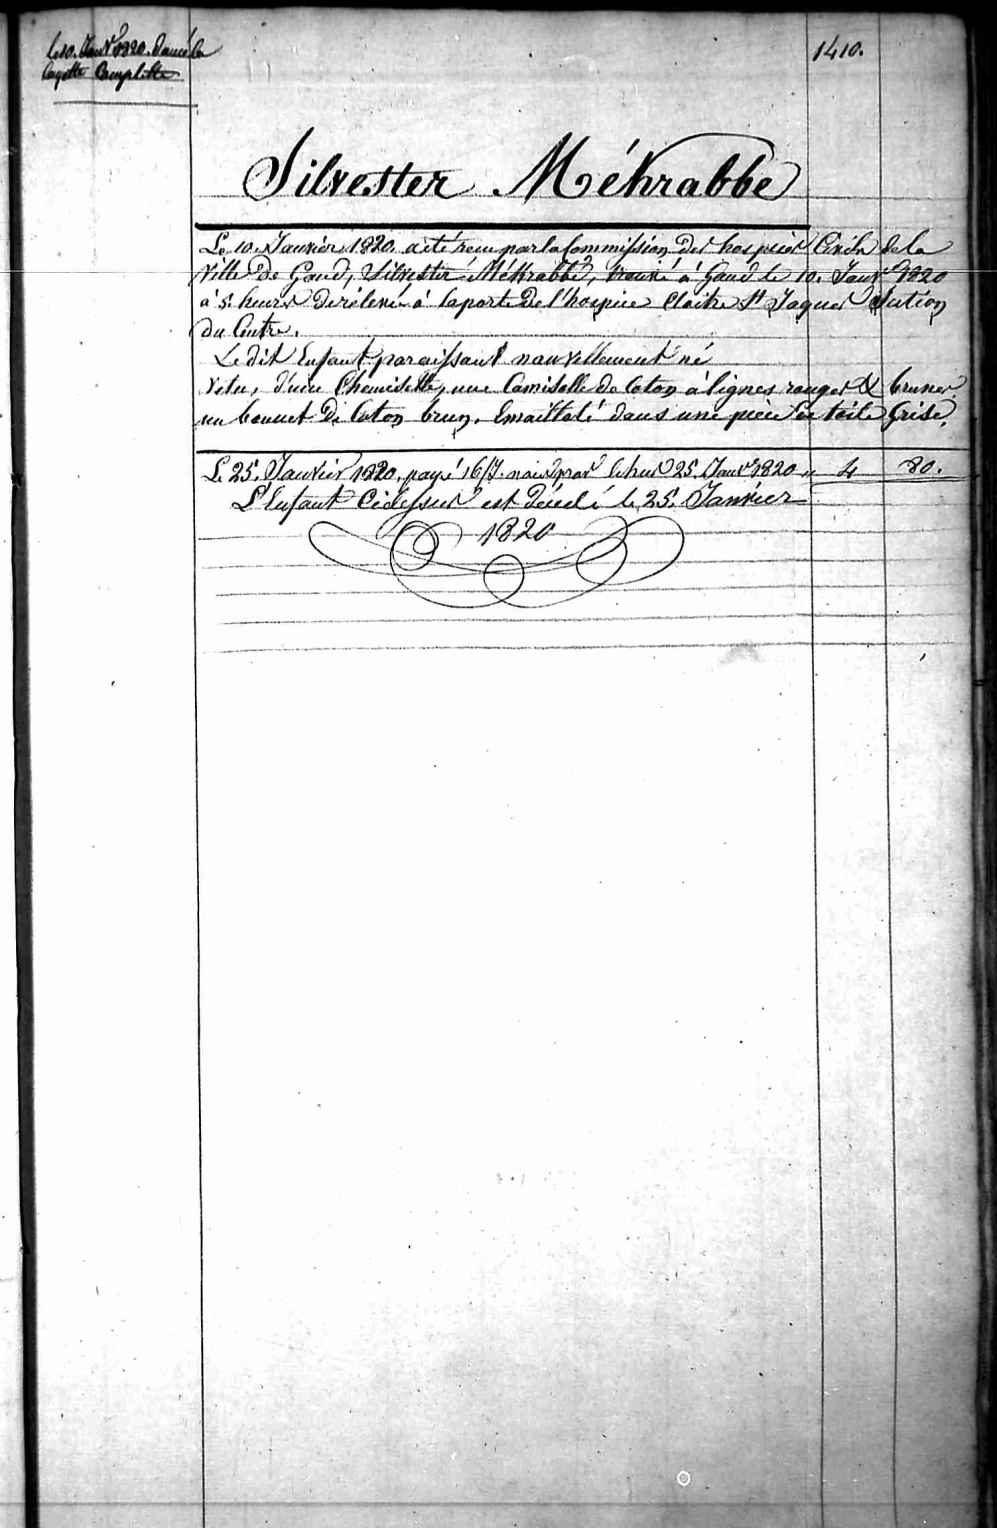 le 10. Janvr 1820. donné la
layette Complette
1410.
Silvester Mékrabbé
Le 10. Janvier 1820. a été recu par la Commission des hospices Civils de la
Ville de Gand, Silvester Mékrabbé, trouvé à Gand le 10. Janvr 1820
à 5 heures de rélevé à la porte de l'hospice Cloitre St Jaques Section
du Centre.
Le dit Enfant paraissant nouvellement né
Vetu, d'une Chemisette, une Camisolle de Coton à lignes rouges & brunes
un bonnet de Coton brun, Emailloté dans une pièce de toile Grise.
Le 25. Janvier 1820. payé 25. Janvr 1820 " 4 80.
L'Enfant Cidessus est décédé le 25. Janvier
1820